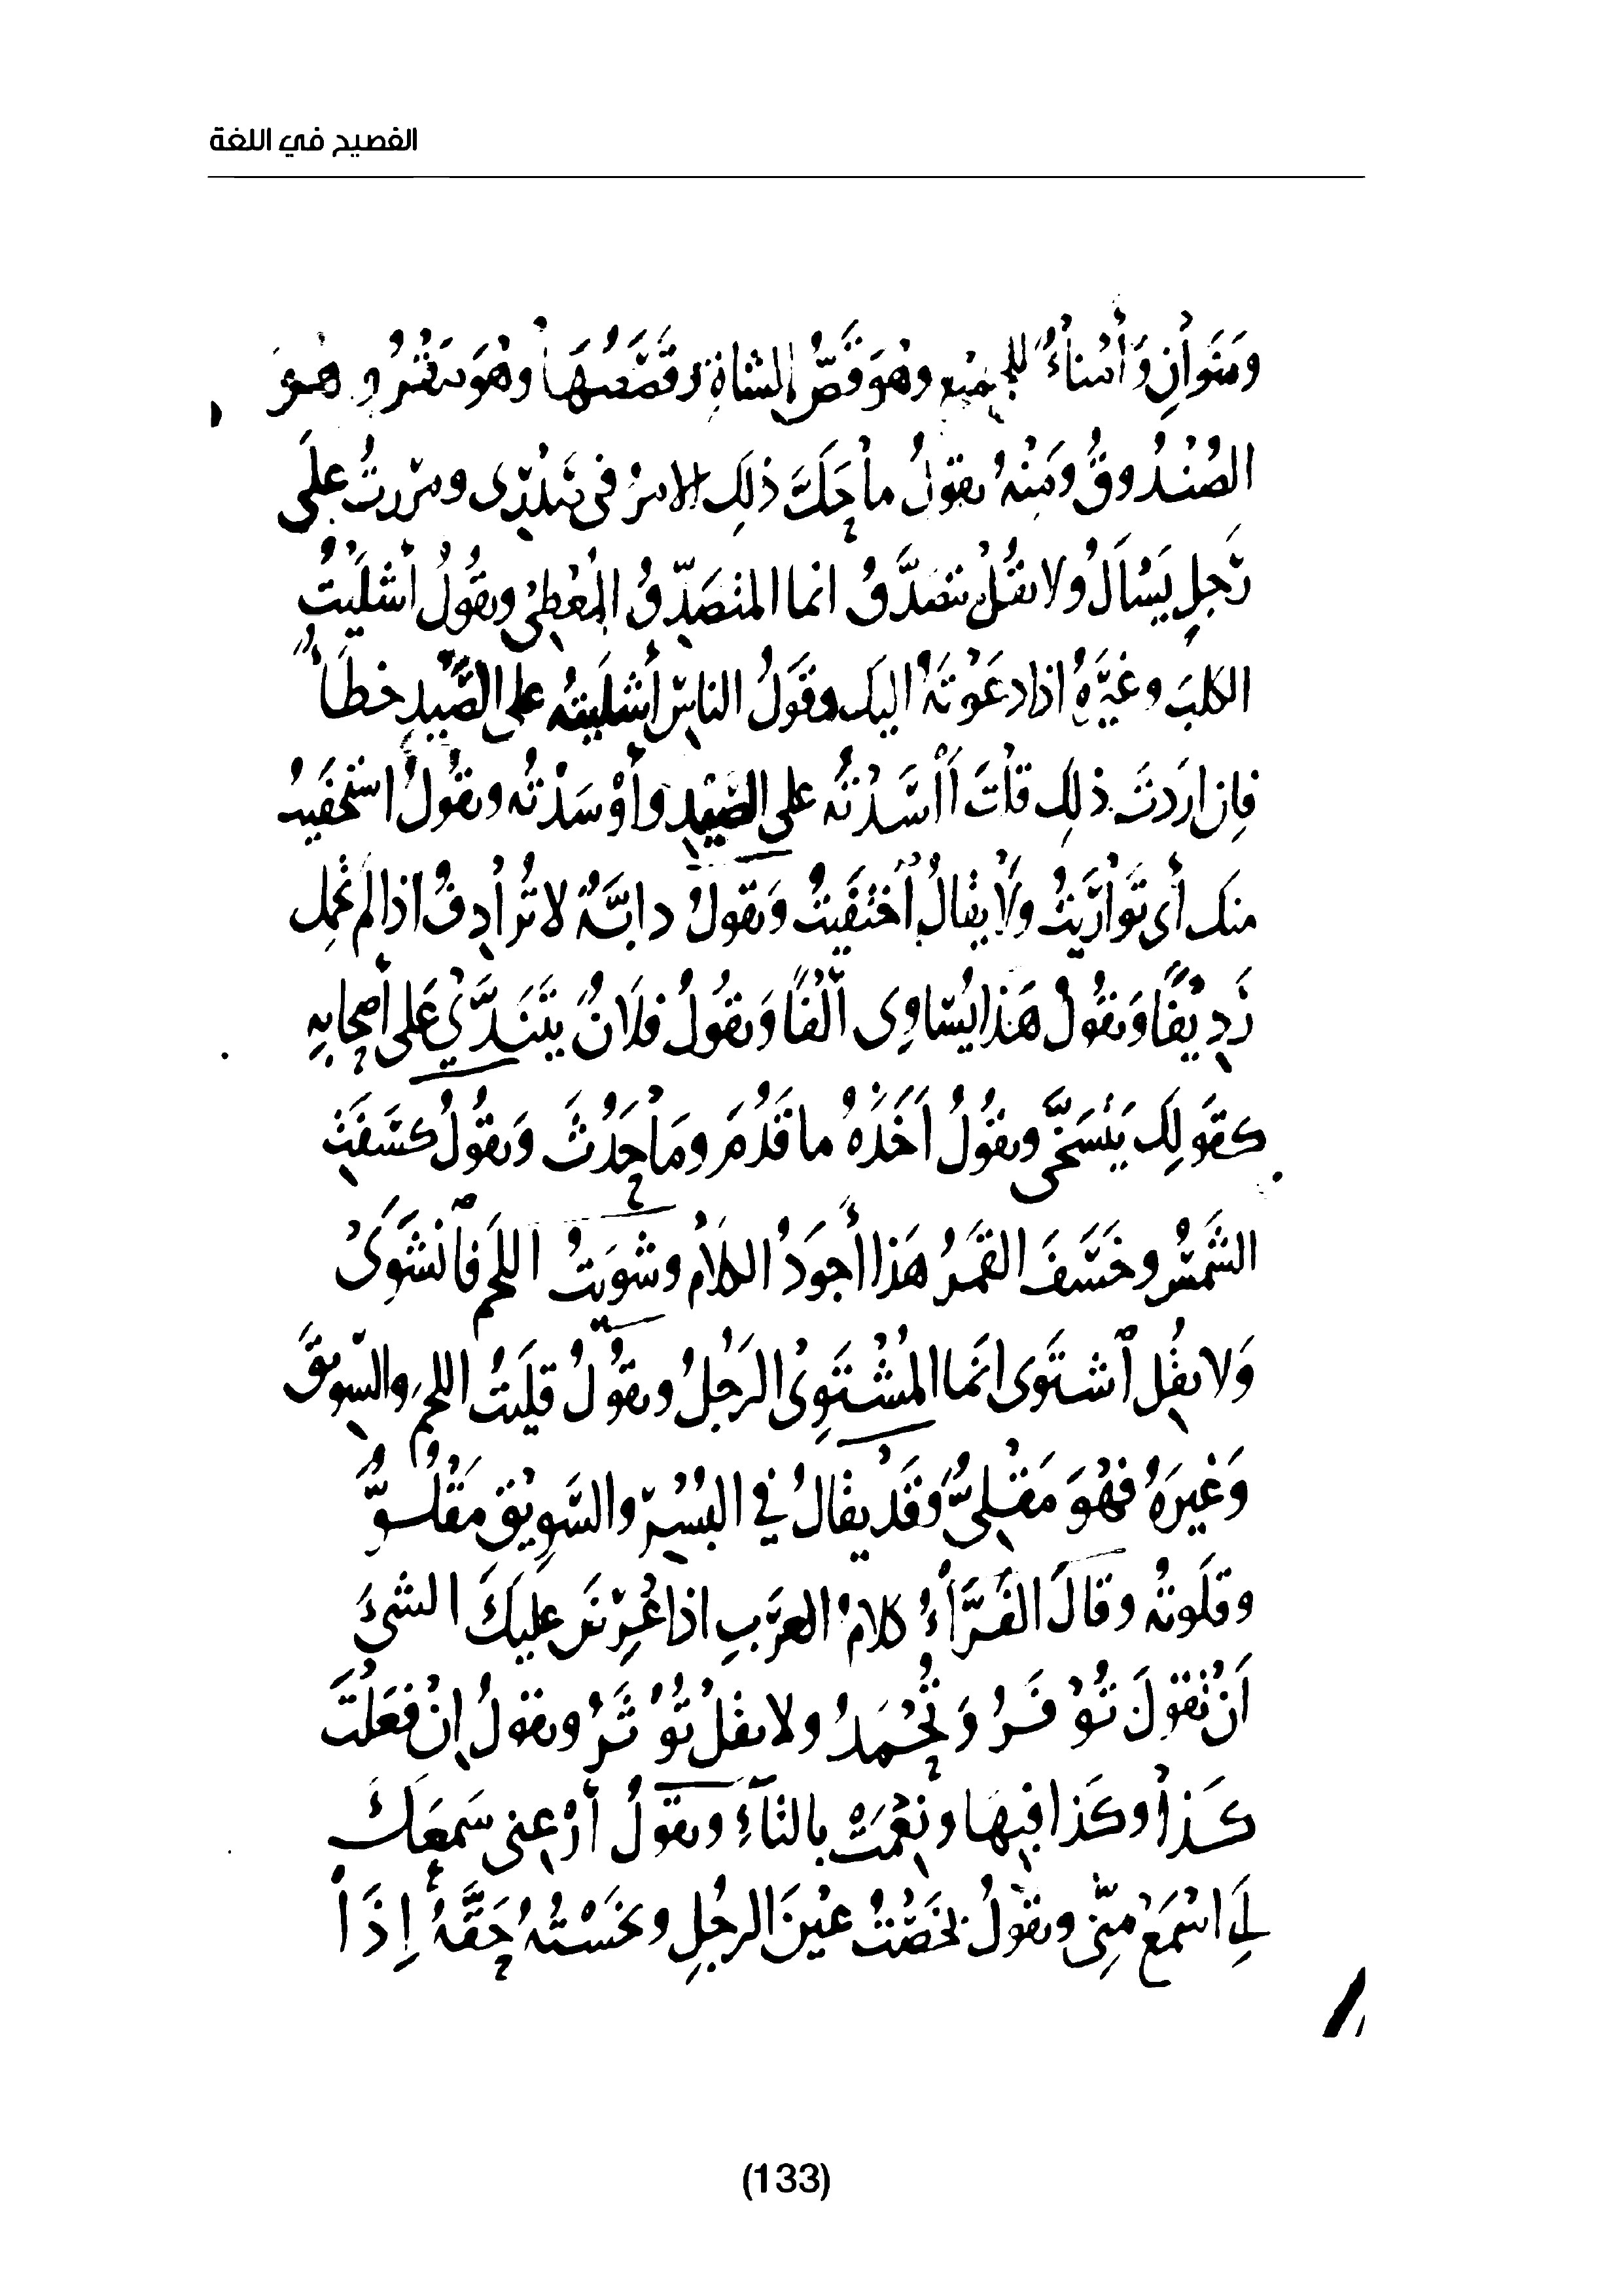 الفصيح في اللغة
وَمَنَوانِ وَأَمْناءٌ للجميع وهُوَ قَصُّ الشاةِ وقَصَصُها وهُوَ وهو
الصُنْدُوقُ ومنه تقولُ ما حَكَّ ذلك الامرُ في صَدْرى ومررتُ على
رَجلٍ يَسْأَلُ ولا تقُلْ يتصَدَّقُ انما المتصَدِّقُ المُعْطِى وتقُولُ أَشْلَيْتُ
الكلبَ وغيرَهُ اذا دعَوْتَهُ اليك وقَولُ الناسِ أَشليتُه على الصَّيدِ خطَأٌ
فإن اردتَ ذلك قلتَ آسَدْتُه على الصَيْدِ وأَوْسَدْتُه وتقُولُ استخفَيتُ
منك أى تَوارَيْتُ ولَا يقالُ اختفَيتُ وَتقولُ دابَّةٌ لا تُرادِفُ اذا لم تحمِل
رَدِيْفًا وَتقُولُ هَذا يُساوِى أَلْفًا وَتقُولُ فلَانٌ يتَنَدَّى عَلى أصحابِهِ
كقَولِك يَتَسَخَّى وتقُولُ أَخَذَهُ ما قَدُمَ ومَا حَدُثَ وَتقُولُ كسَفَتِ
الشَمْسُ وخَسَفَ القَمَرُ هَذا أَجوَدُ الكلامِ وشَوَيتُ اللحمَ فانْشَوَى
وَلا تقُل اشتَوى انَما المُشْتَوِىُ الرَجُلُ وتقُولُ قلَيتُ اللحمَ والسوِيقَ
وَغيرَهُ فهُوَ مَقْلِىٌّ وَقَدْ يقالُ في البُسْرِ والسَوِيْقِ مَقْلُوٌّ
وقلَوتُه وقالَ الفَرَّاءُ كلامُ العرَبِ اذا عُرِضَ عليكَ الشىءُ
اَنْ تقولَ تُوْفَرُ وَتُحْمَدُ ولا تقلْ تُوْثَرُ وتقولُ إنْ فعَلْتَ
كَذا وكَذا فبِهَا ونِعْمَتْ بالتاءِ وتقولُ أَرْعِنى سَمعَكَ
أي اسْمَعْ مِنّى وتقولُ بَخَصْتُ عيْنَ الرجُلِ وبخَسْتُهُ حَقَّهُ إذَا
(133)